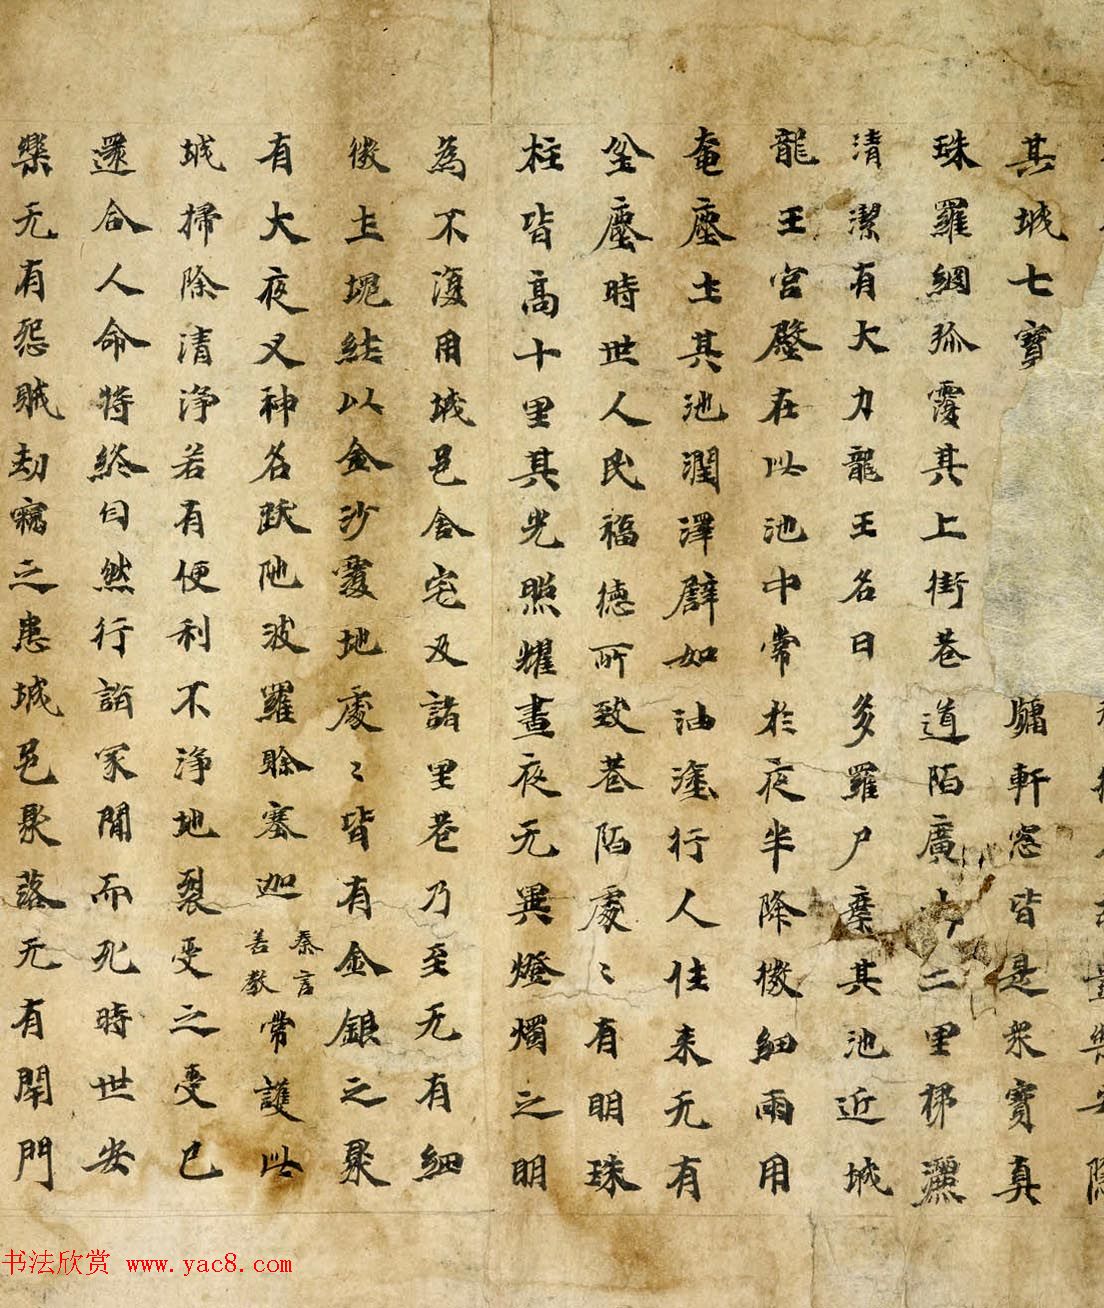 其城七寶 牖軒窓皆是衆寶真
珠羅網弥覆其上街巷道陌廣十二里掃灑
清潔有大力龍王名曰多羅尸棄其池近城
龍王宮殿在此池中常於夜半降微細雨用
奄塵土其池潤澤譬如油塗行人往来无有
坌塵時世人民福德所致巷陌處〻有明珠
柱皆高十里其光照耀晝夜无異燈燭之明
為不復用城邑舍宅及諸里巷乃至无有細
微土塊純以金沙覆地處〻皆有金銀之聚
有大夜叉神名跋陁波羅賒塞迦秦言善教常護此
城掃除清浄若有便利不浄地裂受之受已
還合人命將終自然行詣冢間而死時世安
樂无有怨賊劫竊之患城邑聚落无有閇門
书法欣赏 www.yac8.com